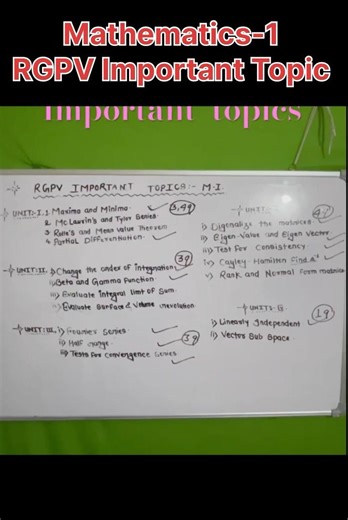 Mathematics-1
RGPV Important Topic
important topics
RGPV IMPORTANT TOPICS:- M.I.
UNIT:-I. 1. Maxima and Minima
2. McLaurin's and Tyler Series
3 Rolle's and Mean Value Theorem
4. Partial Differentiation
3,4Q
UNIT:-II. i) Change the order of integration
ii) Beta and Gamma Function
iii) Evaluate Integral limit of Sum
iv) Evaluate Surface & Volume
3Q
UNIT:-III. i) Fourier Series
ii) Half range
iii) Tests for Convergence Series
3Q
UNIT:
i) Digonalise the matrices
ii) Eigen Value and Eigen Vector
iii) Test for Consistency
iv) Cayley Hamilton Find
v) Rank and Normal form matrices
UNIT:-
i) Linearly Independent
ii) Vector Sub Space
1Q